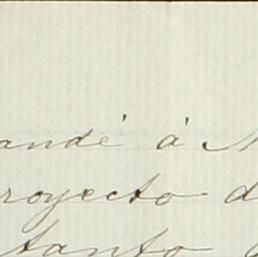 andé á
royecto d
tanto